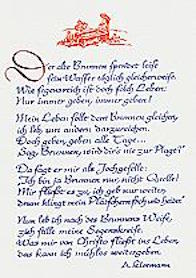 Der alte Brunnen spendet leise
sein Wasser täglich gleicherweise.
Wie segensreich ist doch solch Leben:
Nur immer geben, immer geben!
Mein Leben soll dem Brunnen gleichen,
ich leb, um andern darzureichen.
Doch geben, geben alle Tage...
Sag, Brunnen, wird dir's nie zur Plage?
Da sagt er mir als Jochgeselle:
"Ich bin ja Brunnen nur, nicht Quelle!
Mir fließt es zu, ich geb nur weiter,
drum klingt mein Plätschern froh und heiter."
Nun leb ich nach des Brunnens Weise,
zieh stille meine Segenskreise.
Was mir von Christo fließt ins Leben,
das kann ich mühlos weitergeben.